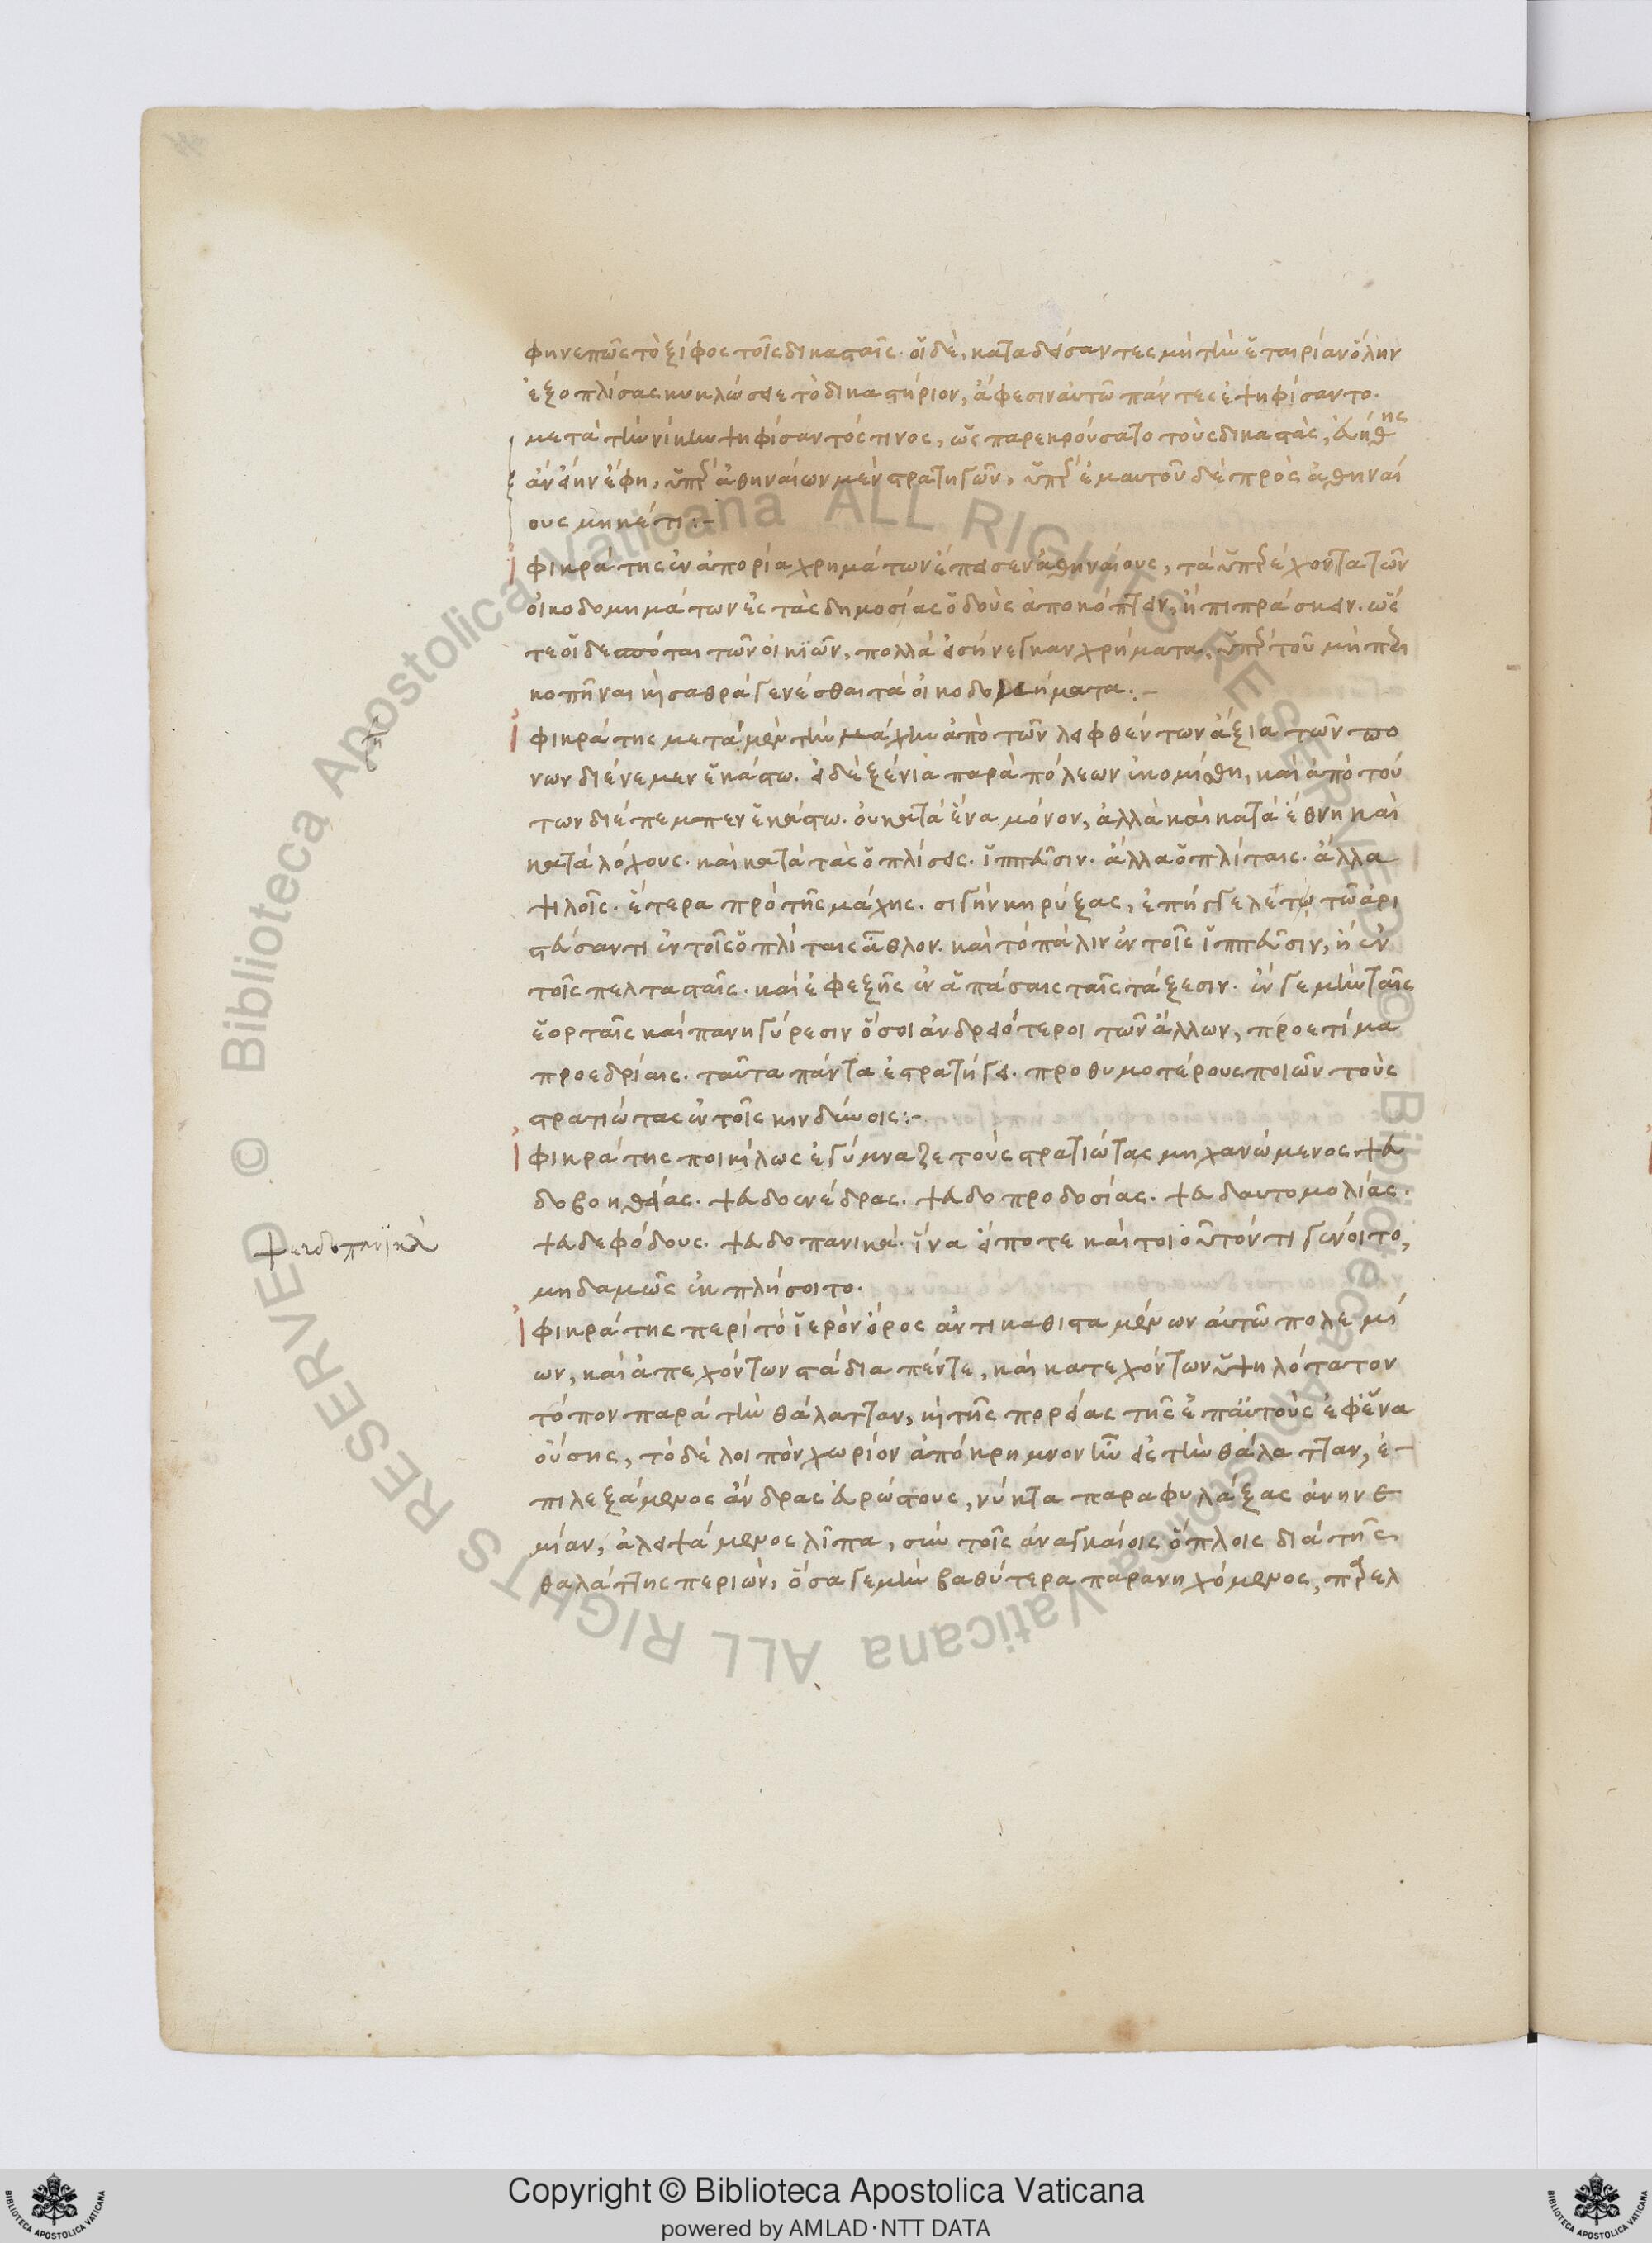 φηνεπῶς τὸ ξίφος τοῖς δικασταῖς. οἱ δὲ, καταδείσαντες μὴ τὴν ἑταιρίαν ὅλην
ἐξοπλίσας κυκλώσει τὸ δικαστήριον, ἄφεσιν αὐτῶ πάντες ἐψηφίσαντο.
μετὰ τὴν νίκην ψηφίσαντός τινος, ὡς παρεκρούσατο τοὺς δικαστὰς,
ἂν εἴην ἔφη, ὑπὲρ ἀθηναίων μὲν στρατηγῶν, ὑπὲρ ἐμαυτοῦ δὲ πρὸς ἀθηναί
ους μηκέτι:-
φικράτης ἐν ἀπορία χρημάτων ἔπεισεν ἀθηναίους, τὰ ὑπερέχοντα τῶν
οἰκοδομημάτων ἐς τὰς δημοσίας ὁδοὺς ἀποκόπτειν, ἢ πιπράσκειν. ὥς
τε οἱ δεσπόται τῶν οἰκιῶν, πολλὰ εἰσήνεγκαν χρήματα, ὑπὲρ τοῦ μὴ περι
κοπῆναι καὶ σαθρὰ γενέσθαι τὰ οἰκοδομήματα.-
φικράτης μετὰ μὲν τὴν μάχην ἀπὸ τῶν λειφθέντων ἄξια τῶν πο
νων διένεμεν ἑκάστω. εἰ δὲ ξένια παρὰ πόλεων ἐκομίσθη, καὶ ἀπὸ τού
των διέπεμπεν ἑκάστω. οὐ κατὰ ἕνα μόνον, ἀλλὰ καὶ κατὰ ἔθνη καὶ
κατὰ λόχους. καὶ κατὰ τὰς ὁπλίσεις. ἱππεῦσιν. ἄλλα ὁπλίταις. ἄλλα
ψιλοῖς. ἕτερα πρὸ τῆς μάχης. σιγὴν κηρύξας, ἐπήγγελέ τῷ τῶ ἀρι
στεύσαντι ἐν τοῖς ὁπλίταις ἆθλον. καὶ τὸ πάλιν ἐν τοῖς ἱππεῦσιν, ἢ ἐν
τοῖς πελτασταῖς. καὶ ἐφεξῆς ἐν ἁπάσαις ταῖς τάξεσιν. ἐν γε μὴν ταῖς
ἑορταῖς καὶ πανηγύρεσιν ὅσοι ἀνδρειότεροι τῶν ἄλλων, προετίμα
προεδρίαις. ταῦτα πάντα ἐστρατήγει. προθυμοτέρους ποιῶν τοὺς
στρατιώτας ἐν τοῖς κινδύνοις:-
φικράτης ποικίλως ἐγύμναζε τοὺς στρατιώτας μηχανώμενος ψευ
δοβοηθείας. ψευδοενέδρας. ψευδοπροδοσίας. ψευδαυτομολίας.
ψευδεφόδους. ψευδοπανικά. ἵνα εἴποτε καὶ τοιοῦτόν τι γένοιτο,
μηδαμῶς ἐκπλήσοιτο.
φικράτης περὶ τὸ ἱερὸν ὄρος ἀντικαθισταμένων αὐτῶ πολεμί
ων, καὶ ἀπεχόντων στάδια πέντε, καὶ κατεχόντων ὑψηλότατον
τόπον παρὰ τὴν θάλατταν, καὶ τῆς πορείας τῆς ἐπαυτοὺς ἐφἕνα
οὔσης, τὸ δὲ λοιπὸν χωρίον ἀπόκρημνον ἦν εἰς τὴν θάλατταν, ἐ-
πιλεξάμενος ἄνδρας εὐρώστους, νύκτα παραφυλάξας ἀνηνε
μίαν, ἀλειψάμενος λῖπα, σὺν τοῖς ἀναγκαίοις ὅπλοις διὰ τῆς
θαλάττης περιὼν, ὅσα γε μὴν βαθύτερα παρανηχόμενος, περιελ
ψευδοπανικὰ